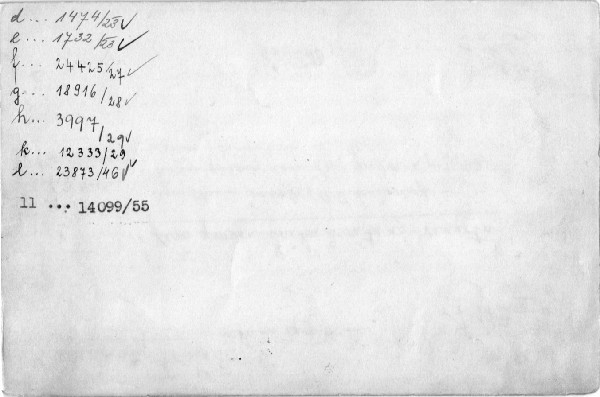 d... 1474/23 ✓
e... 1732/23 ✓
f... 24425/27 ✓
g... 18916/28 ✓
h... 3997/29 ✓
k... 12333/29
l... 23873/46 ✓
11 ... 14099/55